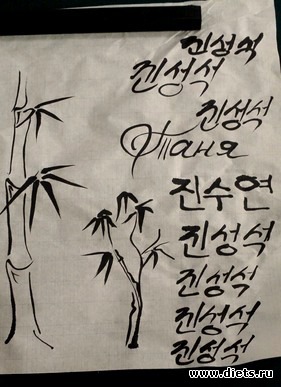 진성석
진성석
진성석
Таня
진수연
진성석
진성석
진성석
진성석
www.diets.ru